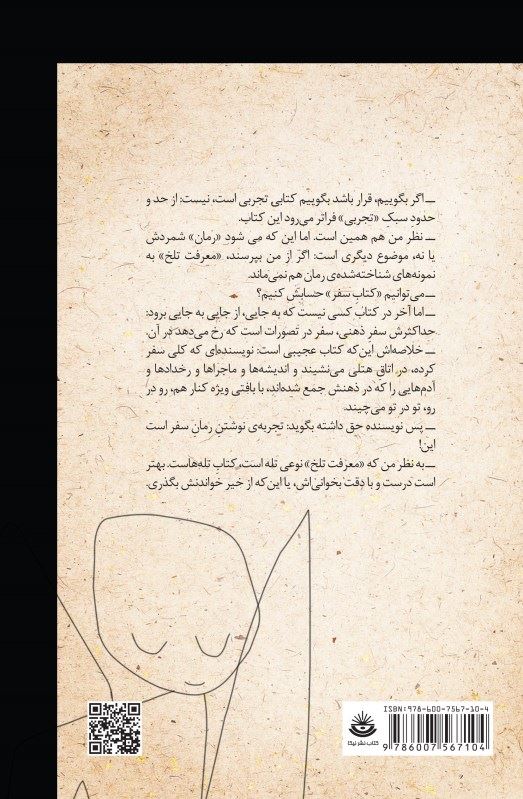 ــ اگر بگوییم، قرار باشد بگوییم کتابی تجربی است، نیست: از حد و
حدود سبکِ «تجربی» فراتر می‌رود این کتاب.
ــ نظر من هم همین است. اما این که می شود «رمان» شمردش
یا نه، موضوع دیگری است: اگر از من بپرسند، «معرفت تلخ» به
نمونه‌های شناخته‌شده‌ی رمان هم نمی‌ماند.
ــ می‌توانیم «کتابِ سفر» حسابش کنیم؟
ــ اما آخر در کتاب کسی نیست که به جایی، از جایی به جایی برود:
حداکثرش سفرِ ذهنی، سفر در تصورات است که رخ می‌دهد در آن.
ــ خلاصه‌اش این‌که کتاب عجیبی است: نویسنده‌ای که کلی سفر
کرده، در اتاقِ هتلی می‌نشیند و اندیشه‌ها و ماجراها و رخدادها و
آدم‌هایی را که در ذهنش جمع شده‌اند، با بافتی ویژه کنار هم، رو در
رو، تو در تو می‌چیند.
ــ پس نویسنده حق داشته بگوید: تجربه‌ی نوشتنِ رمانِ سفر است
این!
ــ به نظر من که «معرفت تلخ» نوعی تله است، کتاب تله‌هاست. بهتر
است درست و با دقت بخوانی‌اش، یا این‌که از خیر خواندنش بگذری.
ISBN: 978-600-7567-10-4
9 786007 567104
کتاب نشر نیکا